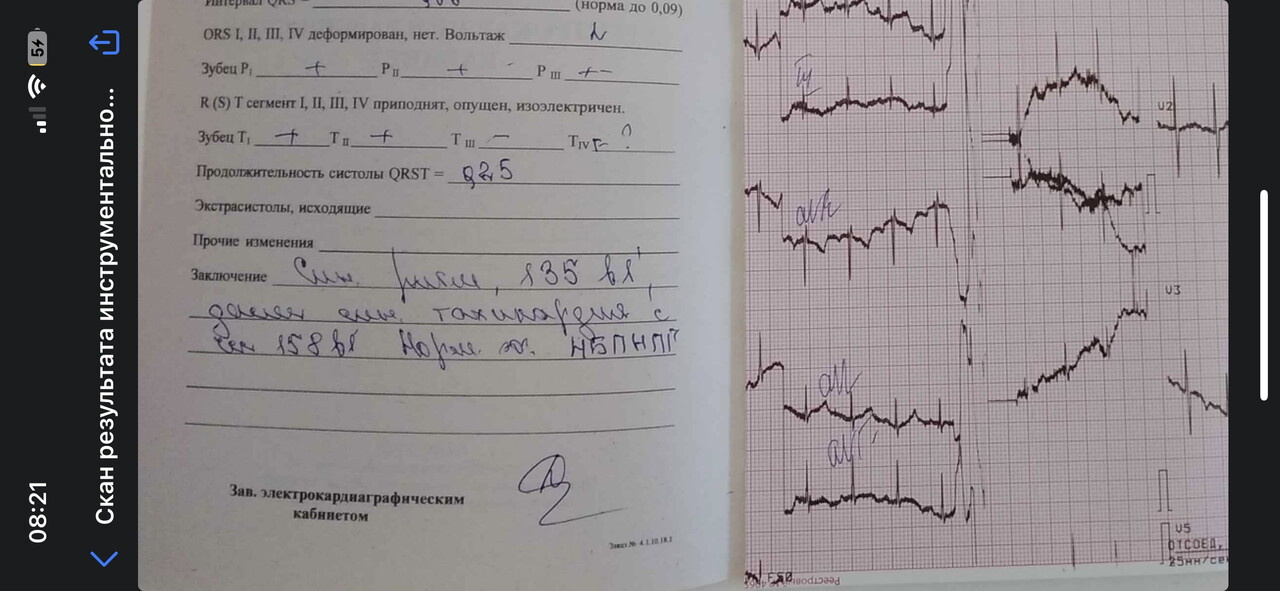 08:21
Скан результата инструментально...
Интервал QRS =
(норма до 0,09)
ORS I, II, III, IV деформирован, нет. Вольтаж
Зубец P I + P II + P III +-
R (S) T сегмент I, II, III, IV приподнят, опущен, изоэлектричен.
Зубец T I + T II + T III - T IV ?
Продолжительность систолы QRST = 225
Экстрасистолы, исходящие
Прочие изменения
Заключение Син. ритм, 135 в 1',
далее син. тахикардия с
158 в 1' Норм. НБПНПГ
Зав. электрокардиаграфическим
кабинетом
Заказ № 4.1.10.18.1
aVR
aVL
aVF
V2
V3
V5
ОТСОЕД.
25мм/сек